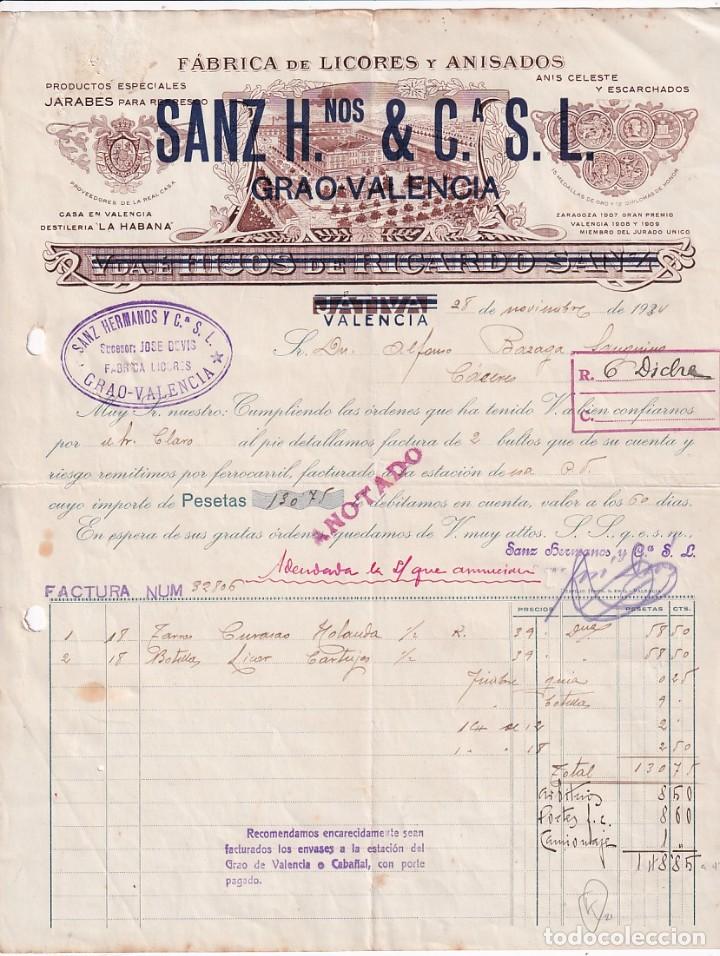 FÁBRICA DE LICORES Y ANISADOS
PRODUCTOS ESPECIALES
JARABES PARA REFRESCO
ANIS CELESTE
Y ESCARCHADOS
SANZ H.NOS & C.A S. L.
GRAO-VALENCIA
PROVEEDORES DE LA REAL CASA
CASA EN VALENCIA
DESTILERIA "LA HABANA"
15 MEDALLAS DE ORO Y 12 DIPLOMAS DE HONOR
ZARAGOZA 1907 GRAN PREMIO
VALENCIA 1908 Y 1909
MIEMBRO DEL JURADO UNICO
VDA. E HIJOS DE RICARDO SANZ
JÁTIVA
VALENCIA
28 de novimbre de 1934
SANZ HERMANOS Y C.ª S. L.
Sucesor: JOSE DEVIS
FABRICA LICORES
GRAO-VALENCIA
Sr. Dn. Alfonso Bazaga
Cáceres
R. 6 Dicbre
C.
Muy Sr. nuestro: Cumpliendo las órdenes que ha tenido V. a bien confiarnos
por Sr. Claro al pie detallamos factura de 2 bultos que de su cuenta y
riesgo remitimos por ferrocarril, facturado a la estación de
cuyo importe de Pesetas 130'75 debitamos en cuenta, valor a los 60 dias.
En espera de sus gratas órdenes quedamos de V. muy attos. S. S. q. e. s. m.,
ANOTADO
Sanz Hermanos y Cª S. L.
Adeudada la s/ que anuncian
FACTURA NUM 32806
PRECIOS PESETAS CTS.
1 18 Tarros Curaçao Holanda 1/2 R. 39 Dna 58 50
2 18 Botellas Licor Cartujos 1/2 39 58 50
Timbre guia 0 25
Botellas 9
1 C/ de 12 2
1 " " 18 2 50
Total 130 75
8 50
Portes f.c. 8 60
Camionaje 1 "
Recomendamos encarecidamente sean
facturados los envases a la estación del
Grao de Valencia o Cabañal, con porte
pagado.
todocoleccion